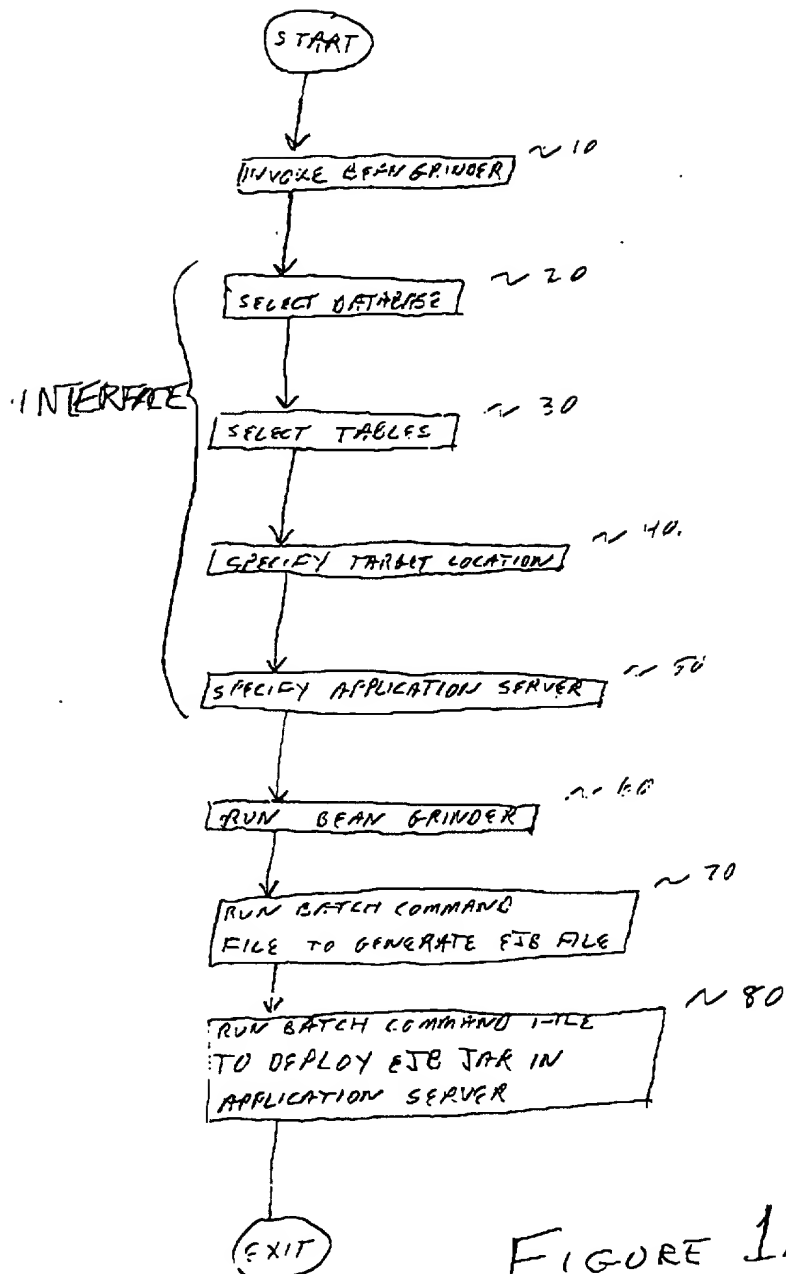 START
INVOKE BEAN GRINDER ~ 10
SELECT DATABASE ~ 20
INTERFACE
SELECT TABLES ~ 30
SPECIFY TARGET LOCATION ~ 40
SPECIFY APPLICATION SERVER ~ 50
RUN BEAN GRINDER ~ 60
RUN BATCH COMMAND ~ 70
FILE TO GENERATE EJB FILE
RUN BATCH COMMAND FILE ~ 80
TO DEPLOY EJB JAR IN
APPLICATION SERVER
EXIT
FIGURE 1.